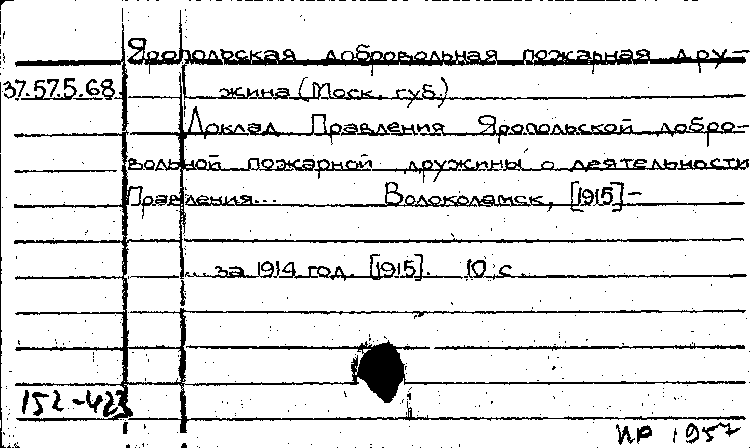 Яропольская добровольная пожарная дру-
37.57.5.68. жина (Моск. губ.)
Доклад Правления Яропольской добро-
вольной пожарной дружины о деятельности
Правления... Волоколамск, [1915]-
... за 1914 год. [1915]. 10 с.
152-423
ИР 1957